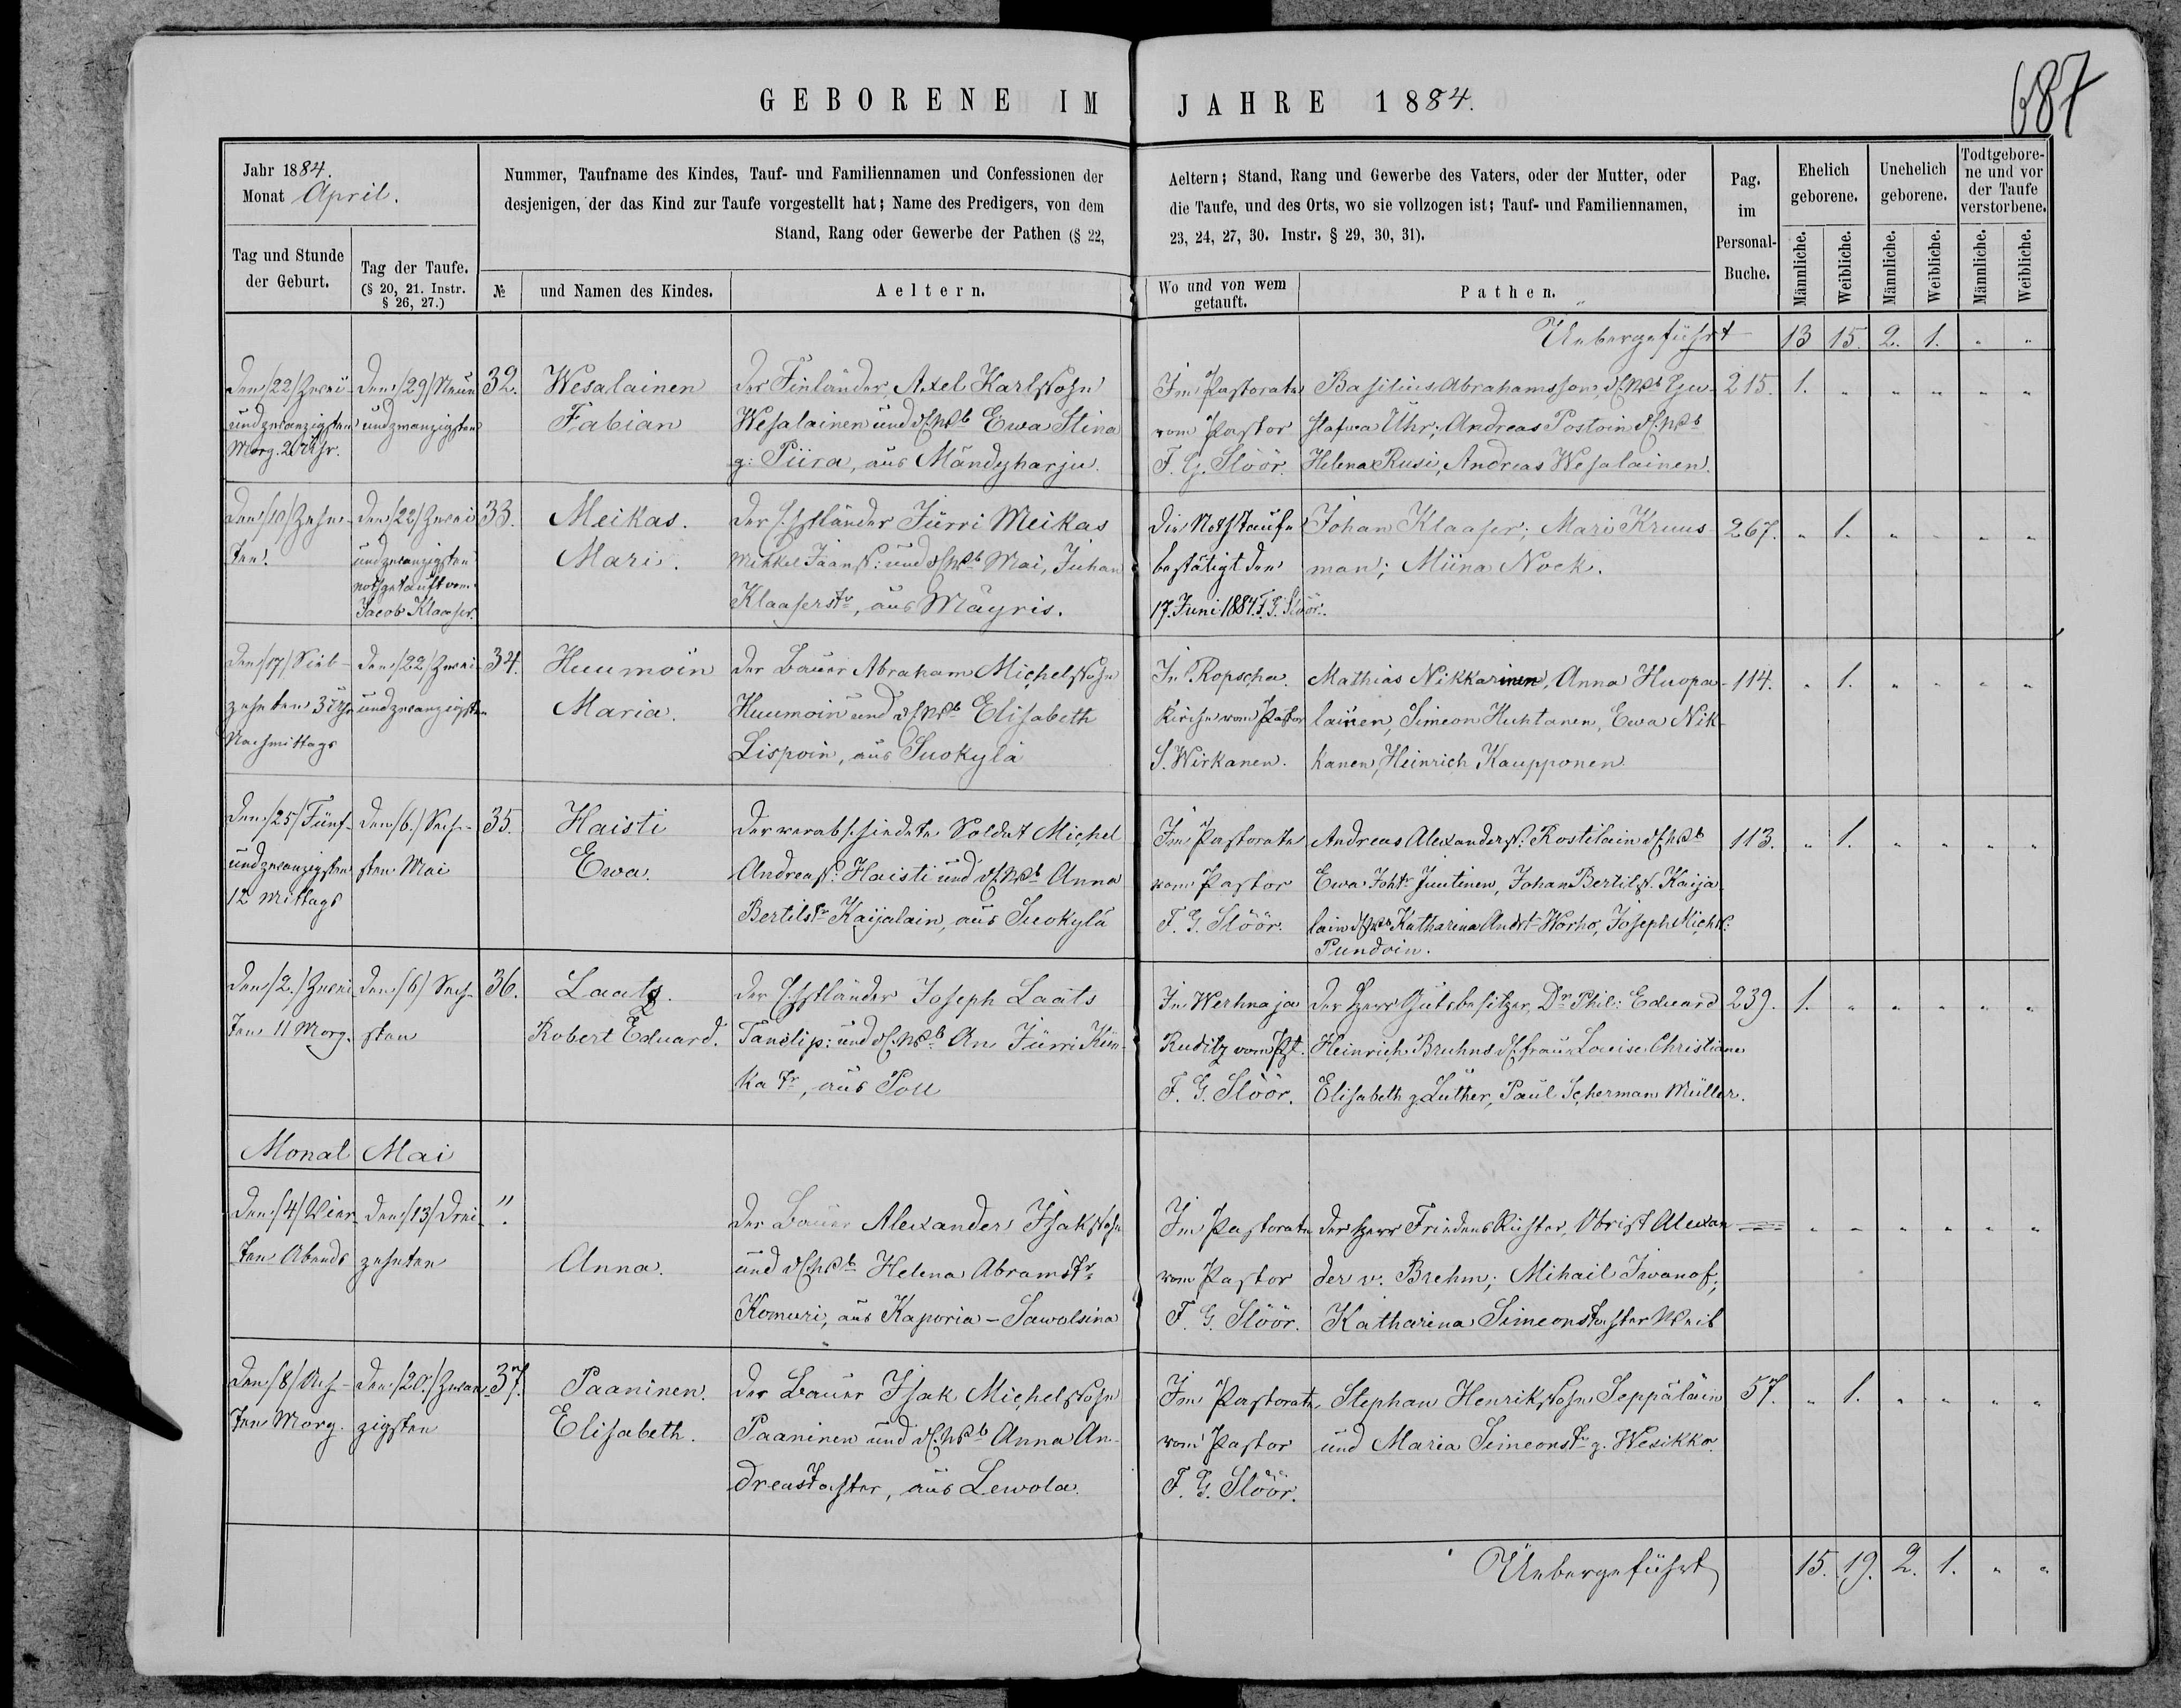 687
GEBORENE IM JAHRE 1884.
Jahr 1884.
Monat April.
Tag und Stunde
der Geburt.
Tag der Taufe.
(§ 20, 21. Instr.
§ 26, 27.)
Nummer, Taufname des Kindes, Tauf- und Familiennamen und Confessionen der
desjenigen, der das Kind zur Taufe vorgestellt hat; Name des Predigers, von dem
Stand, Rang oder Gewerbe der Pathen (§ 22,
№
und Namen des Kindes.
Aeltern.
Aeltern; Stand, Rang und Gewerbe des Vaters, oder der Mutter, oder
die Taufe, und des Orts, wo sie vollzogen ist; Tauf- und Familiennamen,
23, 24, 27, 30. Instr. § 29, 30, 31).
Wo und von wem
getauft.
Pathen.
Pag.
im
Personal-
Buche.
Ehelich
geborene.
Unehelich
geborene.
Todtgebore-
ne und vor
der Taufe
verstorbene.
Männliche.
Weibliche.
Männliche.
Weibliche.
Männliche.
Weibliche.
Uebergeführt 13 15. 2. 1. " "
Den /22/ Zwei-
undzwanzigsten
Morg. 2 Uhr.
Den /29/ Neun
undzwanzigsten
32.
Wesalainen
Fabian
Der Finländer, Axel Karlssohn
Wesalainen und Ewa Stina
g: Piira, aus Mändyharju.
Im Pastorate
vom Pastor
F. G. Slöör.
Basilius Abrahamsson,
Uhr; Andreas Postoin
Helena Rusi, Andreas Wesalainen.
215. 1. " " " " "
Den /10/ Zehn-
ten.
Den /22/ Zwei
undzwanzigsten
nothgetauft vom
Jacob Klaaser.
33.
Meikas.
Mari.
Der Ehstländer Jürri Meikas
Mihkel Jaans: und Mai, Juhan
Klaaserstr, aus Mäyris.
Die Nothtaufe
bestätigt den
17. Juni 1884. F. G. Slöör.
Johan Klaaser; Mari Kruus-
man; Miina Nock.
267. " 1. " " " "
Den /17/ Sieb-
zehnten 3 Uhr
Nachmittags
Den /22/ Zwei-
undzwanzigsten
34.
Huumoin
Maria.
Der Bauer Abraham Michelssohn
Huumoin und Elisabeth
Lispoin, aus Suokylä
In Ropscha.
Kirche vom Pastor
S. Wirkanen.
Mathias Nikkarinen, Anna Huopa-
lainen, Simeon Huhtanen, Ewa Nik-
kanen, Heinrich Kaupponen
114. " 1. " " " "
Den /25/ Fünf-
undzwanzigsten
12 Mittags
Den /6./ Sech-
sten Mai
35.
Haisti
Ewa.
Der verabschiedete Soldat Michel
Andreass: Haisti und Anna
Bertilstr Kaijalain, aus Suokylä
Im Pastorate
vom Pastor
F. G. Slöör.
Andreas Alexanders: Rostilain
Ewa Johtr Juutinen, Johan Bertils. Kaija-
lain Katharina Andrt Worho, Joseph Michls:
Pundoin.
113. " 1. " " " "
Den /2./ Zwei-
ten 11 Morg.
Den /6/ Sech-
sten
36.
Laats.
Robert Eduard.
Der Ehstländer Joseph Laats
und An Jürri
ka tr, aus Poll
In Werhnaja
Ruditz vom Pst.
F. G. Slöör.
Der Herr Gutsbesitzer, Dr Phil: Eduard
Heinrich Bruhns Frau Louise Christiane
Elisabeth g. Luther, Paul Scherman Müller.
239. 1. " " " " "
Monat Mai
Den /4/ Vier-
ten Abends
Den /13/ Drei-
zehnten
".
Anna.
Der Bauer Alexander Isakssohn
und Helena Abramstr
Komuri, aus Kaporia-Sawolsina
Im Pastorate
vom Pastor
F. G. Slöör.
Der Herr Friedensrichter, Obrist Alexan-
der v. Brehm; Mihail Iwanof;
Katharina Simeonstochter Weib
" " " " " "
Den /8/ Ach-
ten Morg.
Den /20./ Zwan-
zigsten
37.
Paaninen.
Elisabeth.
Der Bauer Isak Michelssohn
Paaninen und Anna An-
dreastochter, aus Lewola.
Im Pastorate
vom Pastor
F. G. Slöör.
Stephan Henrikssohn Seppäläin
und Maria Simeonstr g. Wesikko.
57. " 1. " " " "
Uebergeführt 15. 19. 2. 1. " "